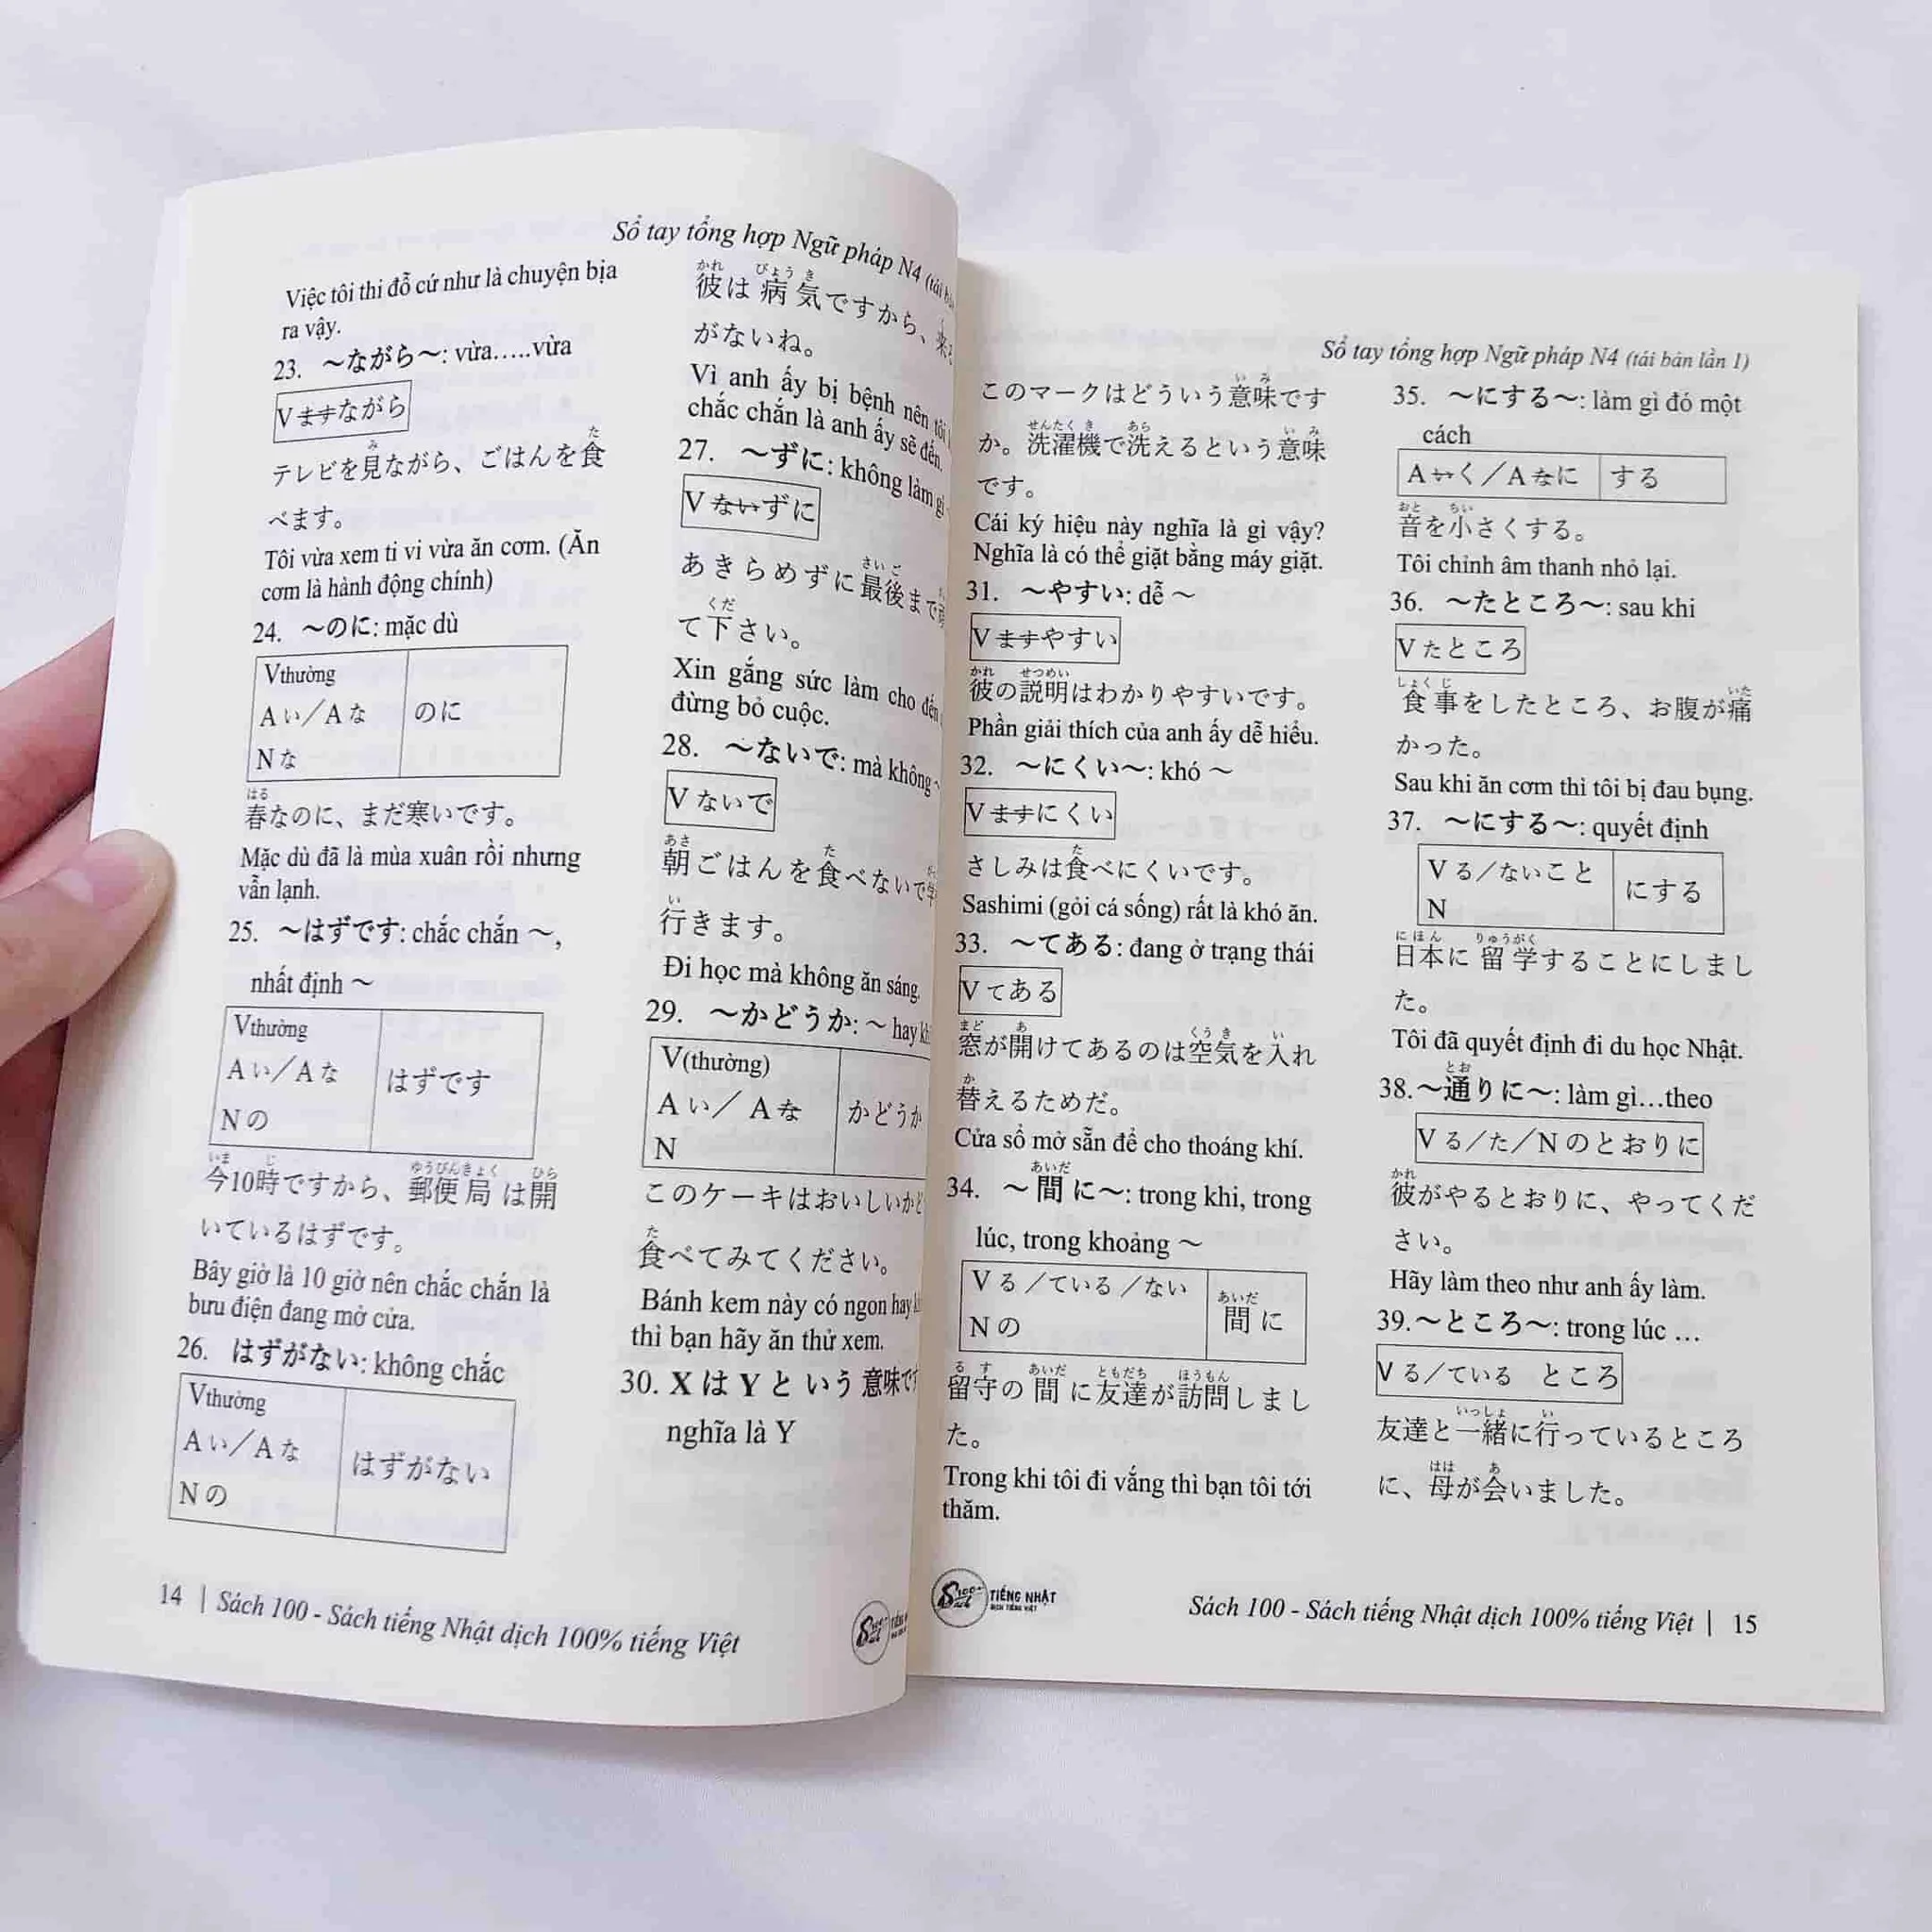 Sổ tay tổng hợp Ngữ pháp N4 (tái
Việc tôi thi đỗ cứ như là chuyện bịa
ra vậy.
23. ～ながら～: vừa…..vừa
Vますながら
テレビを見ながら、ごはんを食
べます。
Tôi vừa xem ti vi vừa ăn cơm. (Ăn
cơm là hành động chính)
24. ～のに: mặc dù
Vthường
Aい／Aな
のに
Nな
春なのに、まだ寒いです。
Mặc dù đã là mùa xuân rồi nhưng
vẫn lạnh.
25. ～はずです: chắc chắn ～,
nhất định ～
Vthường
Aい／Aな
はずです
Nの
今10時ですから、郵便局は開
いているはずです。
Bây giờ là 10 giờ nên chắc chắn là
bưu điện đang mở cửa.
26. はずがない: không chắc
Vthường
Aい／Aな
はずがない
Nの
彼は病気ですから、来
がないね。
Vì anh ấy bị bệnh nên tôi
chắc chắn là anh ấy sẽ đến.
27. ～ずに: không làm gì
Vないずに
あきらめずに最後まで
て下さい。
Xin gắng sức làm cho đến
đừng bỏ cuộc.
28. ～ないで: mà không ～
Vないで
朝ごはんを食べないで
行きます。
Đi học mà không ăn sáng.
29. ～かどうか: ～ hay
V(thường)
Aい／Aな
かどうか
N
このケーキはおいしいかど
食べてみてください。
Bánh kem này có ngon hay
thì bạn hãy ăn thử xem.
30. X は Y と いう 意味で
nghĩa là Y
14 | Sách 100 - Sách tiếng Nhật dịch 100% tiếng Việt
Sổ tay tổng hợp Ngữ pháp N4 (tái bản lần 1)
このマークはどういう意味です
か。洗濯機で洗えるという意味
です。
Cái ký hiệu này nghĩa là gì vậy?
Nghĩa là có thể giặt bằng máy giặt.
31. ～やすい: dễ ～
Vますやすい
彼の説明はわかりやすいです。
Phần giải thích của anh ấy dễ hiểu.
32. ～にくい～: khó ～
Vますにくい
さしみは食べにくいです。
Sashimi (gỏi cá sống) rất là khó ăn.
33. ～てある: đang ở trạng thái
Vてある
窓が開けてあるのは空気を入れ
替えるためだ。
Cửa sổ mở sẵn để cho thoáng khí.
34. ～間に～: trong khi, trong
lúc, trong khoảng ～
Vる／ている／ない
間に
Nの
留守の間に友達が訪問しまし
た。
Trong khi tôi đi vắng thì bạn tôi tới
thăm.
35. ～にする～: làm gì đó một
cách
Aいく／Aなに する
音を小さくする。
Tôi chỉnh âm thanh nhỏ lại.
36. ～たところ～: sau khi
Vたところ
食事をしたところ、お腹が痛
かった。
Sau khi ăn cơm thì tôi bị đau bụng.
37. ～にする～: quyết định
Vる／ないこと
にする
N
日本に留学することにしまし
た。
Tôi đã quyết định đi du học Nhật.
38.～通りに～: làm gì…theo
Vる／た／Nのとおりに
彼がやるとおりに、やってくだ
さい。
Hãy làm theo như anh ấy làm.
39.～ところ～: trong lúc …
Vる／ている ところ
友達と一緒に行っているところ
に、母が会いました。
TIẾNG NHẬT
DỊCH TIẾNG VIỆT
Sách 100 - Sách tiếng Nhật dịch 100% tiếng Việt | 15